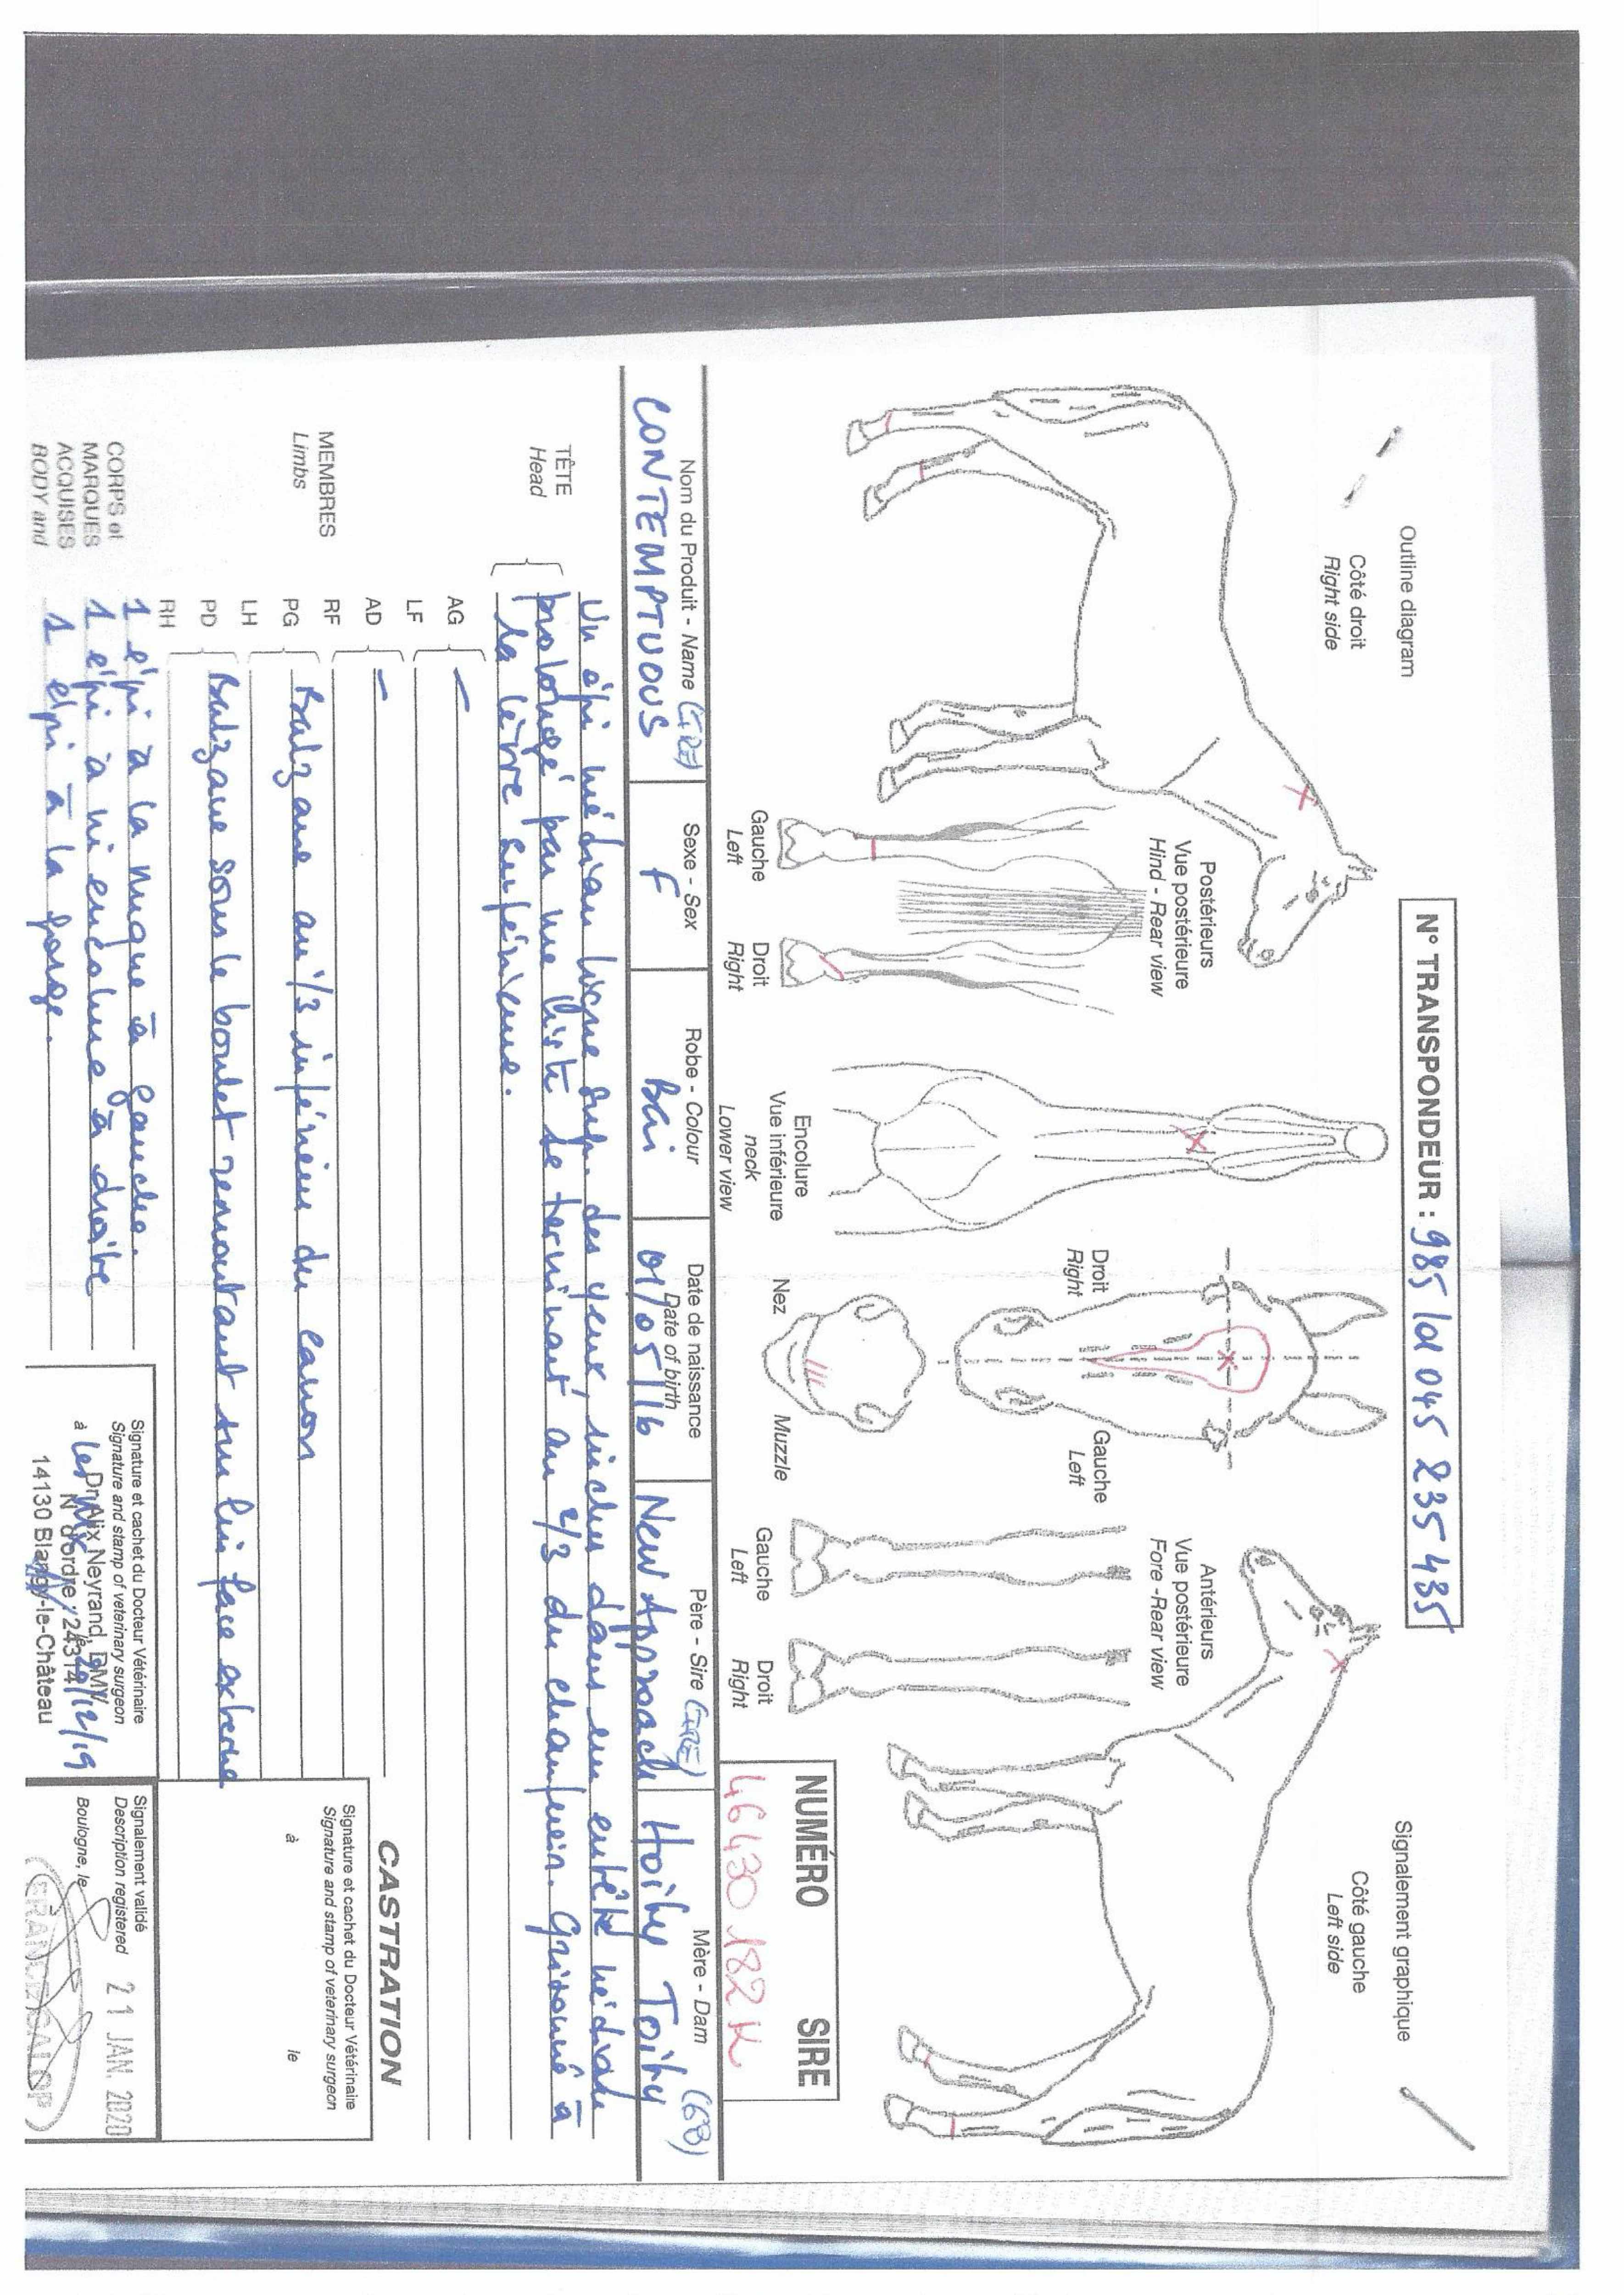 Outline diagram
N° TRANSPONDEUR : 985 101 045 235 435
Signalement graphique
Côté droit
Right side
Côté gauche
Left side
Postérieurs
Vue postérieure
Hind - Rear view
Gauche
Left
Droit
Right
Encolure
Vue inférieure
neck
Lower view
Droit
Right
Gauche
Left
Nez
Muzzle
Antérieurs
Vue postérieure
Fore -Rear view
Gauche
Left
Droit
Right
NUMÉRO SIRE
46430 182 K
Nom du Produit - Name (IRE)
CONTEMPTUOUS
Sexe - Sex
F
Robe - Colour
Bai
Date de naissance
Date of birth
01/05/16
Père - Sire (IRE)
New Approach
Mère - Dam (GB)
Hoity Toity
TÊTE
Head
Un épi médian ligne sup. des yeux, inclus dans en entête médiane
prolongé par une liste se terminant au 2/3 du chanfrein. Grisonné à
la lèvre supérieure.
AG
LF
–
MEMBRES
Limbs
AD
RF
–
PG
LH
Balzane au 1/3 inférieur du canon
PD
RH
Balzane sous le boulet remontant sur lui face externe
CORPS et
MARQUES
ACQUISES
BODY and
1 épi à la nuque à gauche.
1 épi à mi encolure à droite
1 épi à la gorge.
CASTRATION
Signature et cachet du Docteur Vétérinaire
Signature and stamp of veterinary surgeon
à le
Signature et cachet du Docteur Vétérinaire
Signature and stamp of veterinary surgeon
à
Dr Alix Neyrand, DMV
N° d'ordre : 24314
14130 Blangy-le-Château
/12/19
Signalement validé
Description registered
21 JAN. 2020
Boulogne, le
FRANCE GALOP